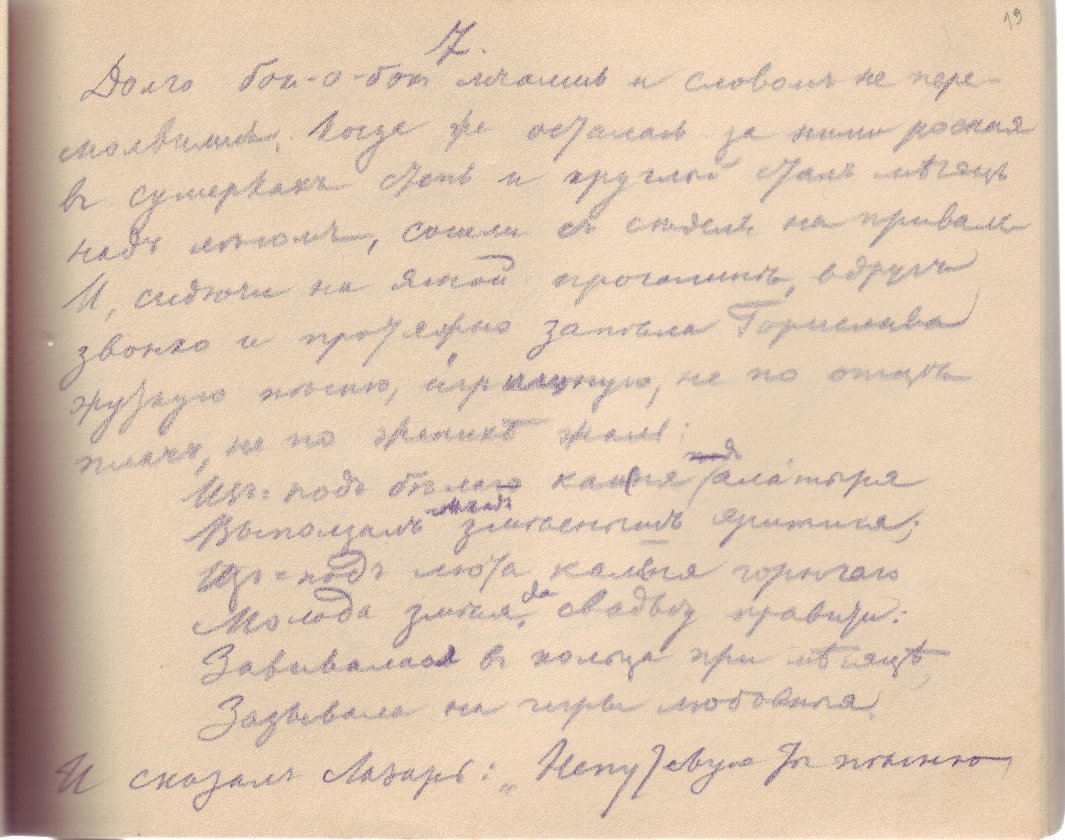 19
7.
Долго бок-о-бок мчались и словомъ не пере-
молвились. Когда же осталась за ними росная
въ сумеркахъ степь и круглый сталъ мѣсяцъ
надъ лѣсомъ, сошли съ сѣделъ на привалъ.
И, сидючи на ясной прогалинѣ, вдругъ
звонко и протяжно запѣла Горислава
чужую пѣсню, не по
плачъ, не по жали:
Изъ-подъ бѣлаго камня алатыря
Выползалъ младъ змѣенышъ яритися;
Изъ-подъ люта камня горючаго
Молода змѣя, да свадьбу правити:
Завивалася въ кольца при мѣсяцѣ,
Зазывала на игры любовныя.
И сказалъ Лазарь: „Непутевую ты пѣсню